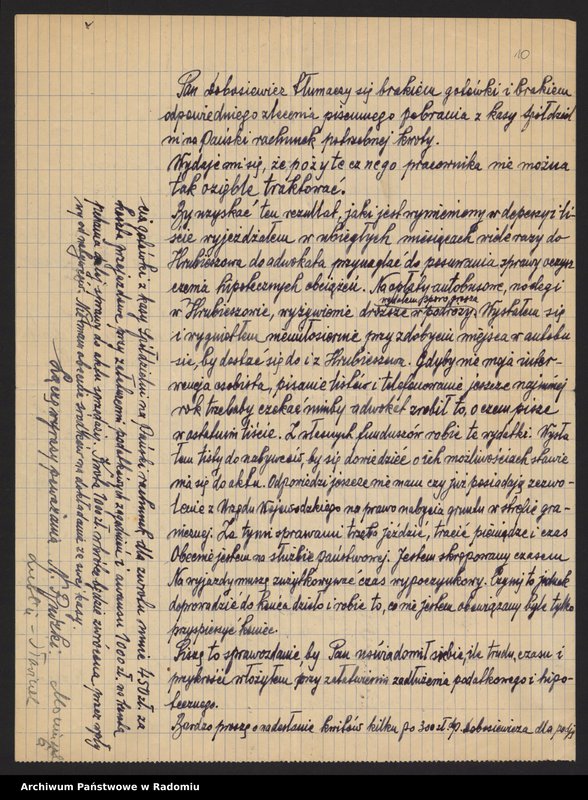 10
Pan Dobosiewicz tłumaczy się brakiem gotówki i brakiem
odpowiedniego zlecenia pisemnego pobrania z kasy spółdziel
ni na Pański rachunek potrzebnej kwoty.
Wydaje mi się, że pożytecznego pracownika nie można
tak ozięble traktować.
By uzyskać ten rezultat, jaki jest wymieniony w depeszy i li-
ście wyjeżdżałem w ubiegłych miesiącach wiele razy do
Hrubieszowa do adwokata przynaglać do posuwania sprawy oczysz
czenia hipotecznych obciążeń. Na opłaty autobusowe, noclegi
w Hrubieszowie, wyżywienie droższe w podróży wydałem sporo grosza. Wystałem się
i wygniotłem niemiłosiernie przy zdobyciu miejsca w autobu
sie, by dostać się do i z Hrubieszowa. Gdyby nie moja inter-
wencja osobista, pisanie listów i telefonowanie jeszcze najmniej
rok trzebaby czekać nimby adwokat zrobił to, o czem pisze
w ostatnim liście. Z własnych funduszów robię te wydatki. Wysła
łem listy do nabywców, by się dowiedzieć o ich możliwościach stawie
nia się do aktu. Odpowiedzi jeszcze nie mam czy już posiadają zezwo-
lenie z Urzędu Wojewódzkiego na prawo nabycia gruntu w strefie gra-
nicznej. Za tymi sprawami trzeba jeździć, tracić pieniądze i czas
Obecnie jestem na służbie państwowej. Jestem skrępowany czasem
Na wyjazdy muszę zużytkowywać czas wypoczynkowy. Czynię to jednak
doprowadzić do końca dzieło i robię to, co nie jestem obowiązany byle tylko
przyspieszyć koniec.
Piszę to sprawozdanie, by Pan uświadomił sobie, ile trudu, czasu i
przykrości włożyłem przy załatwieniu zadłużenia podatkowego i hipo-
tecznego.
Bardzo proszę o nadesłanie kwitów kilku po 300 zł. dla p. Dobosiewicza dla podję
cia gotówki z kasy Spółdzielni na Pański rachunek dla zwrotu mnie 450 zł. za
koszta przyjazdowe przy załatwieniu podatkowych zagadnień i awansu 1000 zł. w
pchania całej sprawy do aktu przedaży. Kwota 1000 zł. wkrótce będzie zwrócona przez
wy od nabywców. Nie mam obecnie środków na dokładanie ze swej kasy.
Łączę wyrazy poważania
Archiwum Państwowe w Radomiu